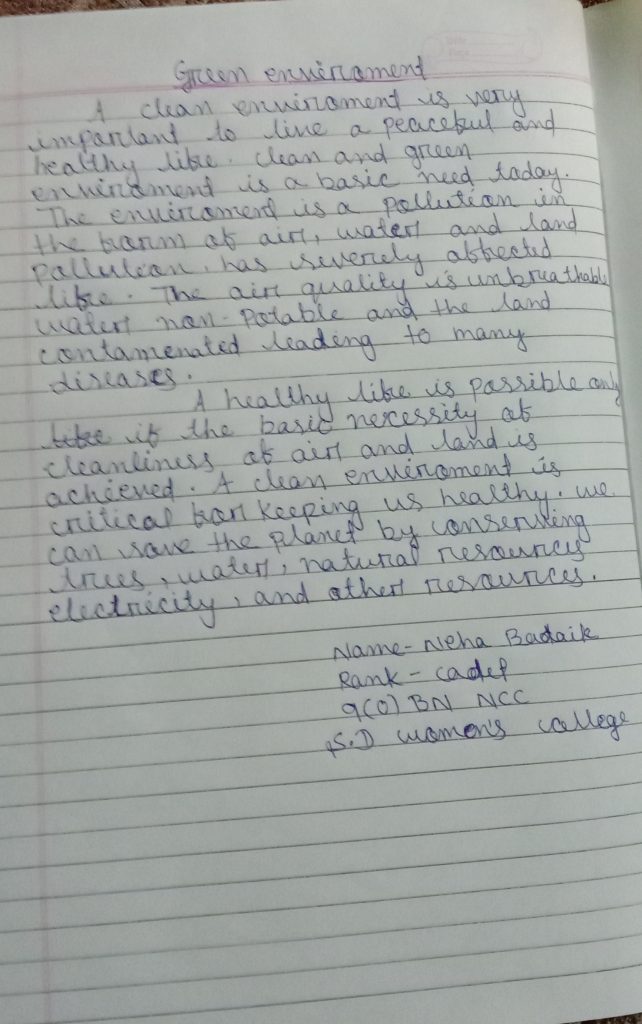 Green enviroment
A clean enviroment is very
impartant to live a peaceful and
healthy life. clean and green
enviroment is a basic need today.
The enviroment is a pollution in
the form of air, water and land
pallutean, has severely affected
life. The air quality is unbreathable
water non-potable and the land
contamenated leading to many
diseases.
A healthy life is passible only
life if the basic necessity of
cleanliness of air and land is
achieved. A clean enviroment is
critical for keeping us healthy. we
can save the planet by conserving
trees, water, natural resources
electricity, and other resources.
Name- Neha Badaik
Rank - cadet
9(O) BN NCC
S.D women's college